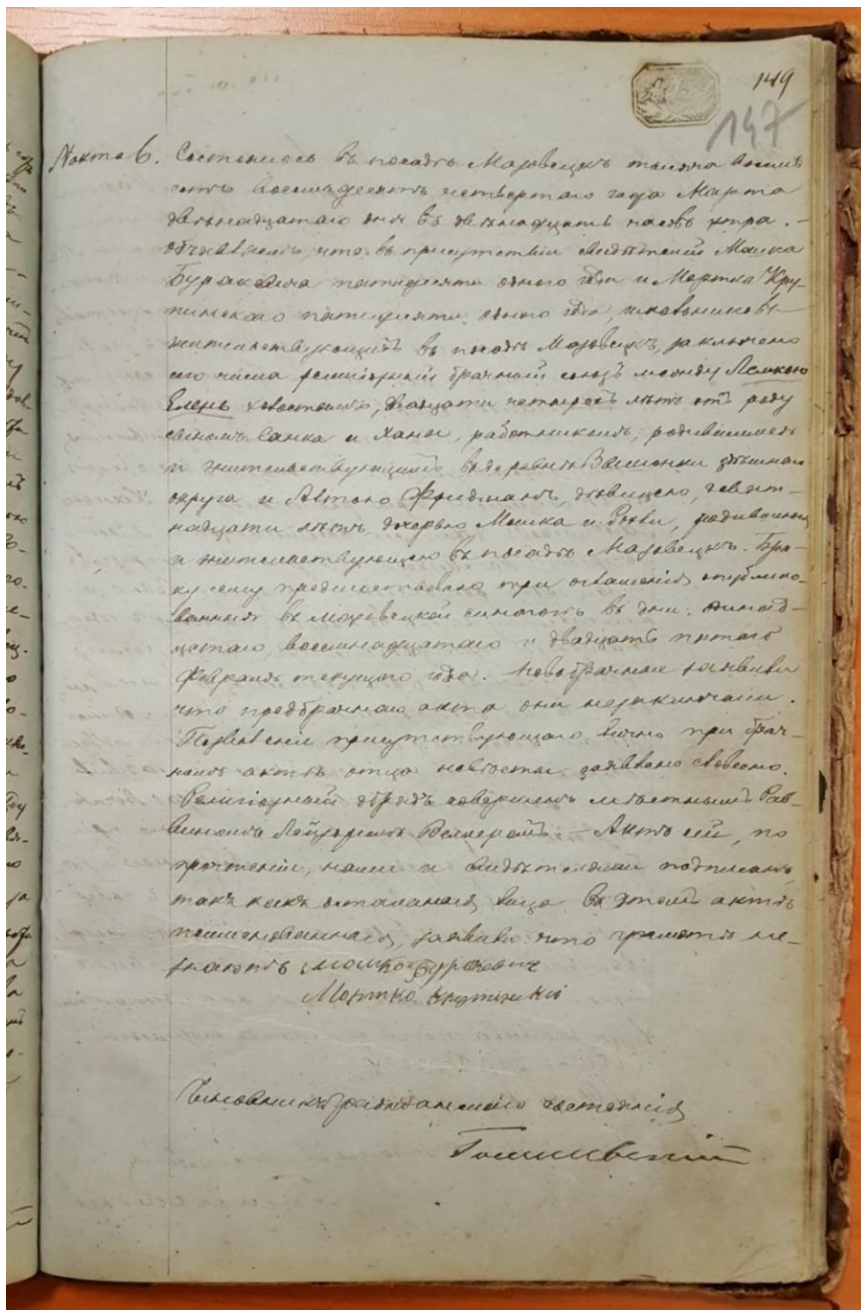 149
147
№ акта 6. Состоялось въ посадѣ Мазовецкъ тысяча восемь
сотъ восемьдесятъ четвертого года Марта
двѣнадцатаго дня въ двѣнадцать часовъ утра. –
объявляемъ, что въ присутствіи свидѣтелей Мошка
Бураковича пятидесяти одного года и Мортка Кру-
пинскаго пятидесяти одного года, школьниковъ
жительствующихъ въ посадѣ Мазовецкъ, заключено
сего числа религіозный брачный союзъ между
Елень холостымъ, двадцати четырехъ лѣтъ отъ роду
сыномъ и Ханы, работникомъ, родившимся
и жительствующимъ въ деревнѣ здѣшняго
округа и Фридманъ, дѣвицею, девят-
надцати лѣтъ, дочерью Мошка и родившеюся
и жительствующею въ посадѣ Мазовецкъ. Бра-
ку сему предшествовало три оглашенія опублико-
ванныя въ Мазовецкой синагогѣ въ дни: одинад-
цатаго, восемнадцатаго и двадцать пятаго
Февраля текущаго года. Новобрачные заявили
что предбрачнаго акта они незаключали.
Позволеніе присутствующаго лично при брач-
номъ актѣ отца невѣсты заявлено словесно.
Религіозный обрядъ совершенъ мѣстнымъ Рав-
виномъ – Актъ сей, по
прочтеніи, нами и свидѣтелями подписанъ
такъ какъ остальныя лица въ этомъ актѣ
поименованныя, заявили что грамотѣ не-
знаютъ Мошко Буракевич
Мортко Крупинскі
Чиновникъ гражданскаго состоянія